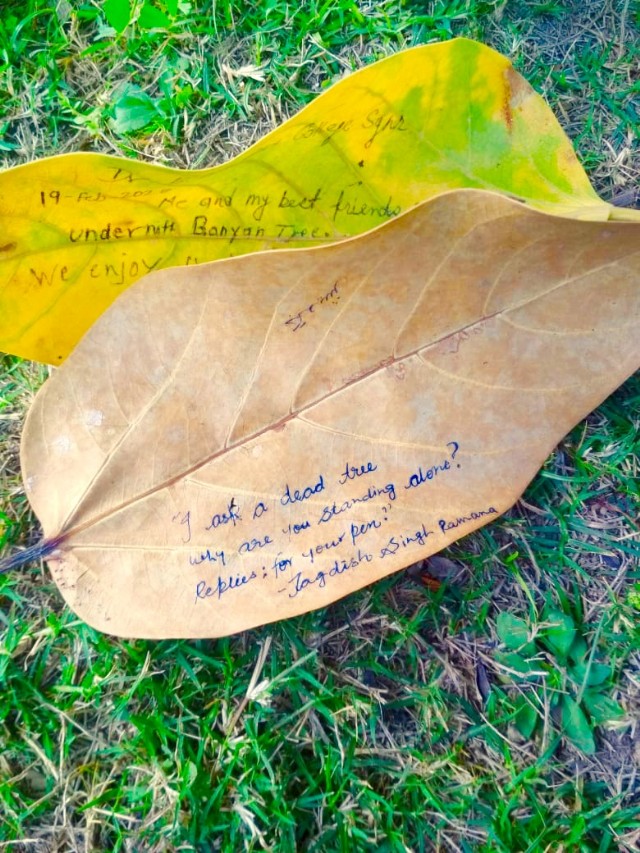 19-Feb- Me and my best friends
undernith Banyan Tree.
We enjoy
"I ask a dead tree
why are you standing alone?
Replies: for your pen."
-Jagdish Singh Ramana